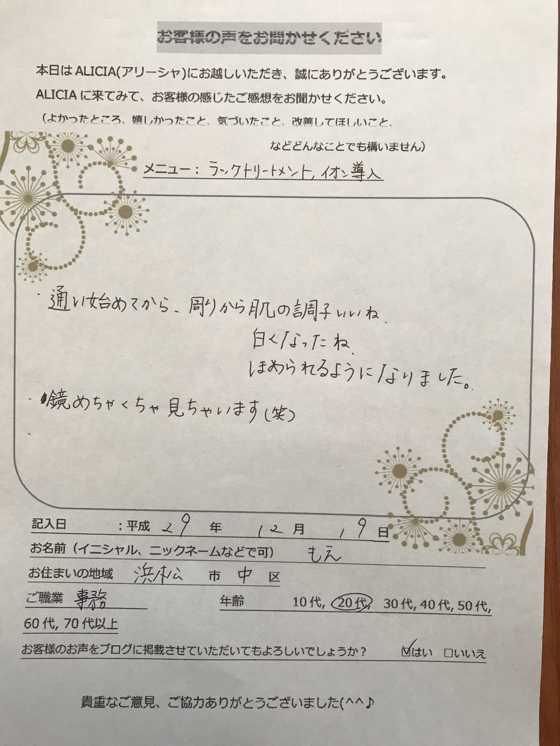 お客様の声をお聞かせください
本日はALICIA(アリーシャ)にお越しいただき、誠にありがとうございます。
ALICIAに来てみて、お客様の感じたご感想をお聞かせください。
(よかったところ、嬉しかったこと、気づいたこと、改善してほしいこと、
などどんなことでも構いません)
メニュー: ラックトリートメント, イオン導入
・通い始めてから、周りから肌の調子いいね、
白くなったね、
ほめられるようになりました。
・鏡めちゃくちゃ見ちゃいます(笑)
・
記入日 :平成 29 年 12 月 19 日
お名前(イニシャル、ニックネームなどで可) もえ
お住まいの地域 浜松 市 中 区
ご職業 事務 年齢 10代, 20代, 30代, 40代, 50代,
60代, 70代以上
お客様のお声をブログに掲載させていただいてもよろしいでしょうか? ☑はい □いいえ
貴重なご意見、ご協力ありがとうございました(^^♪